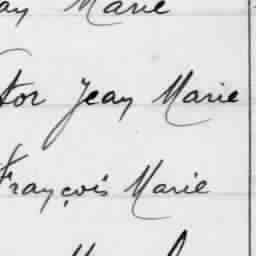 Marie
tor Jean Marie
François Marie